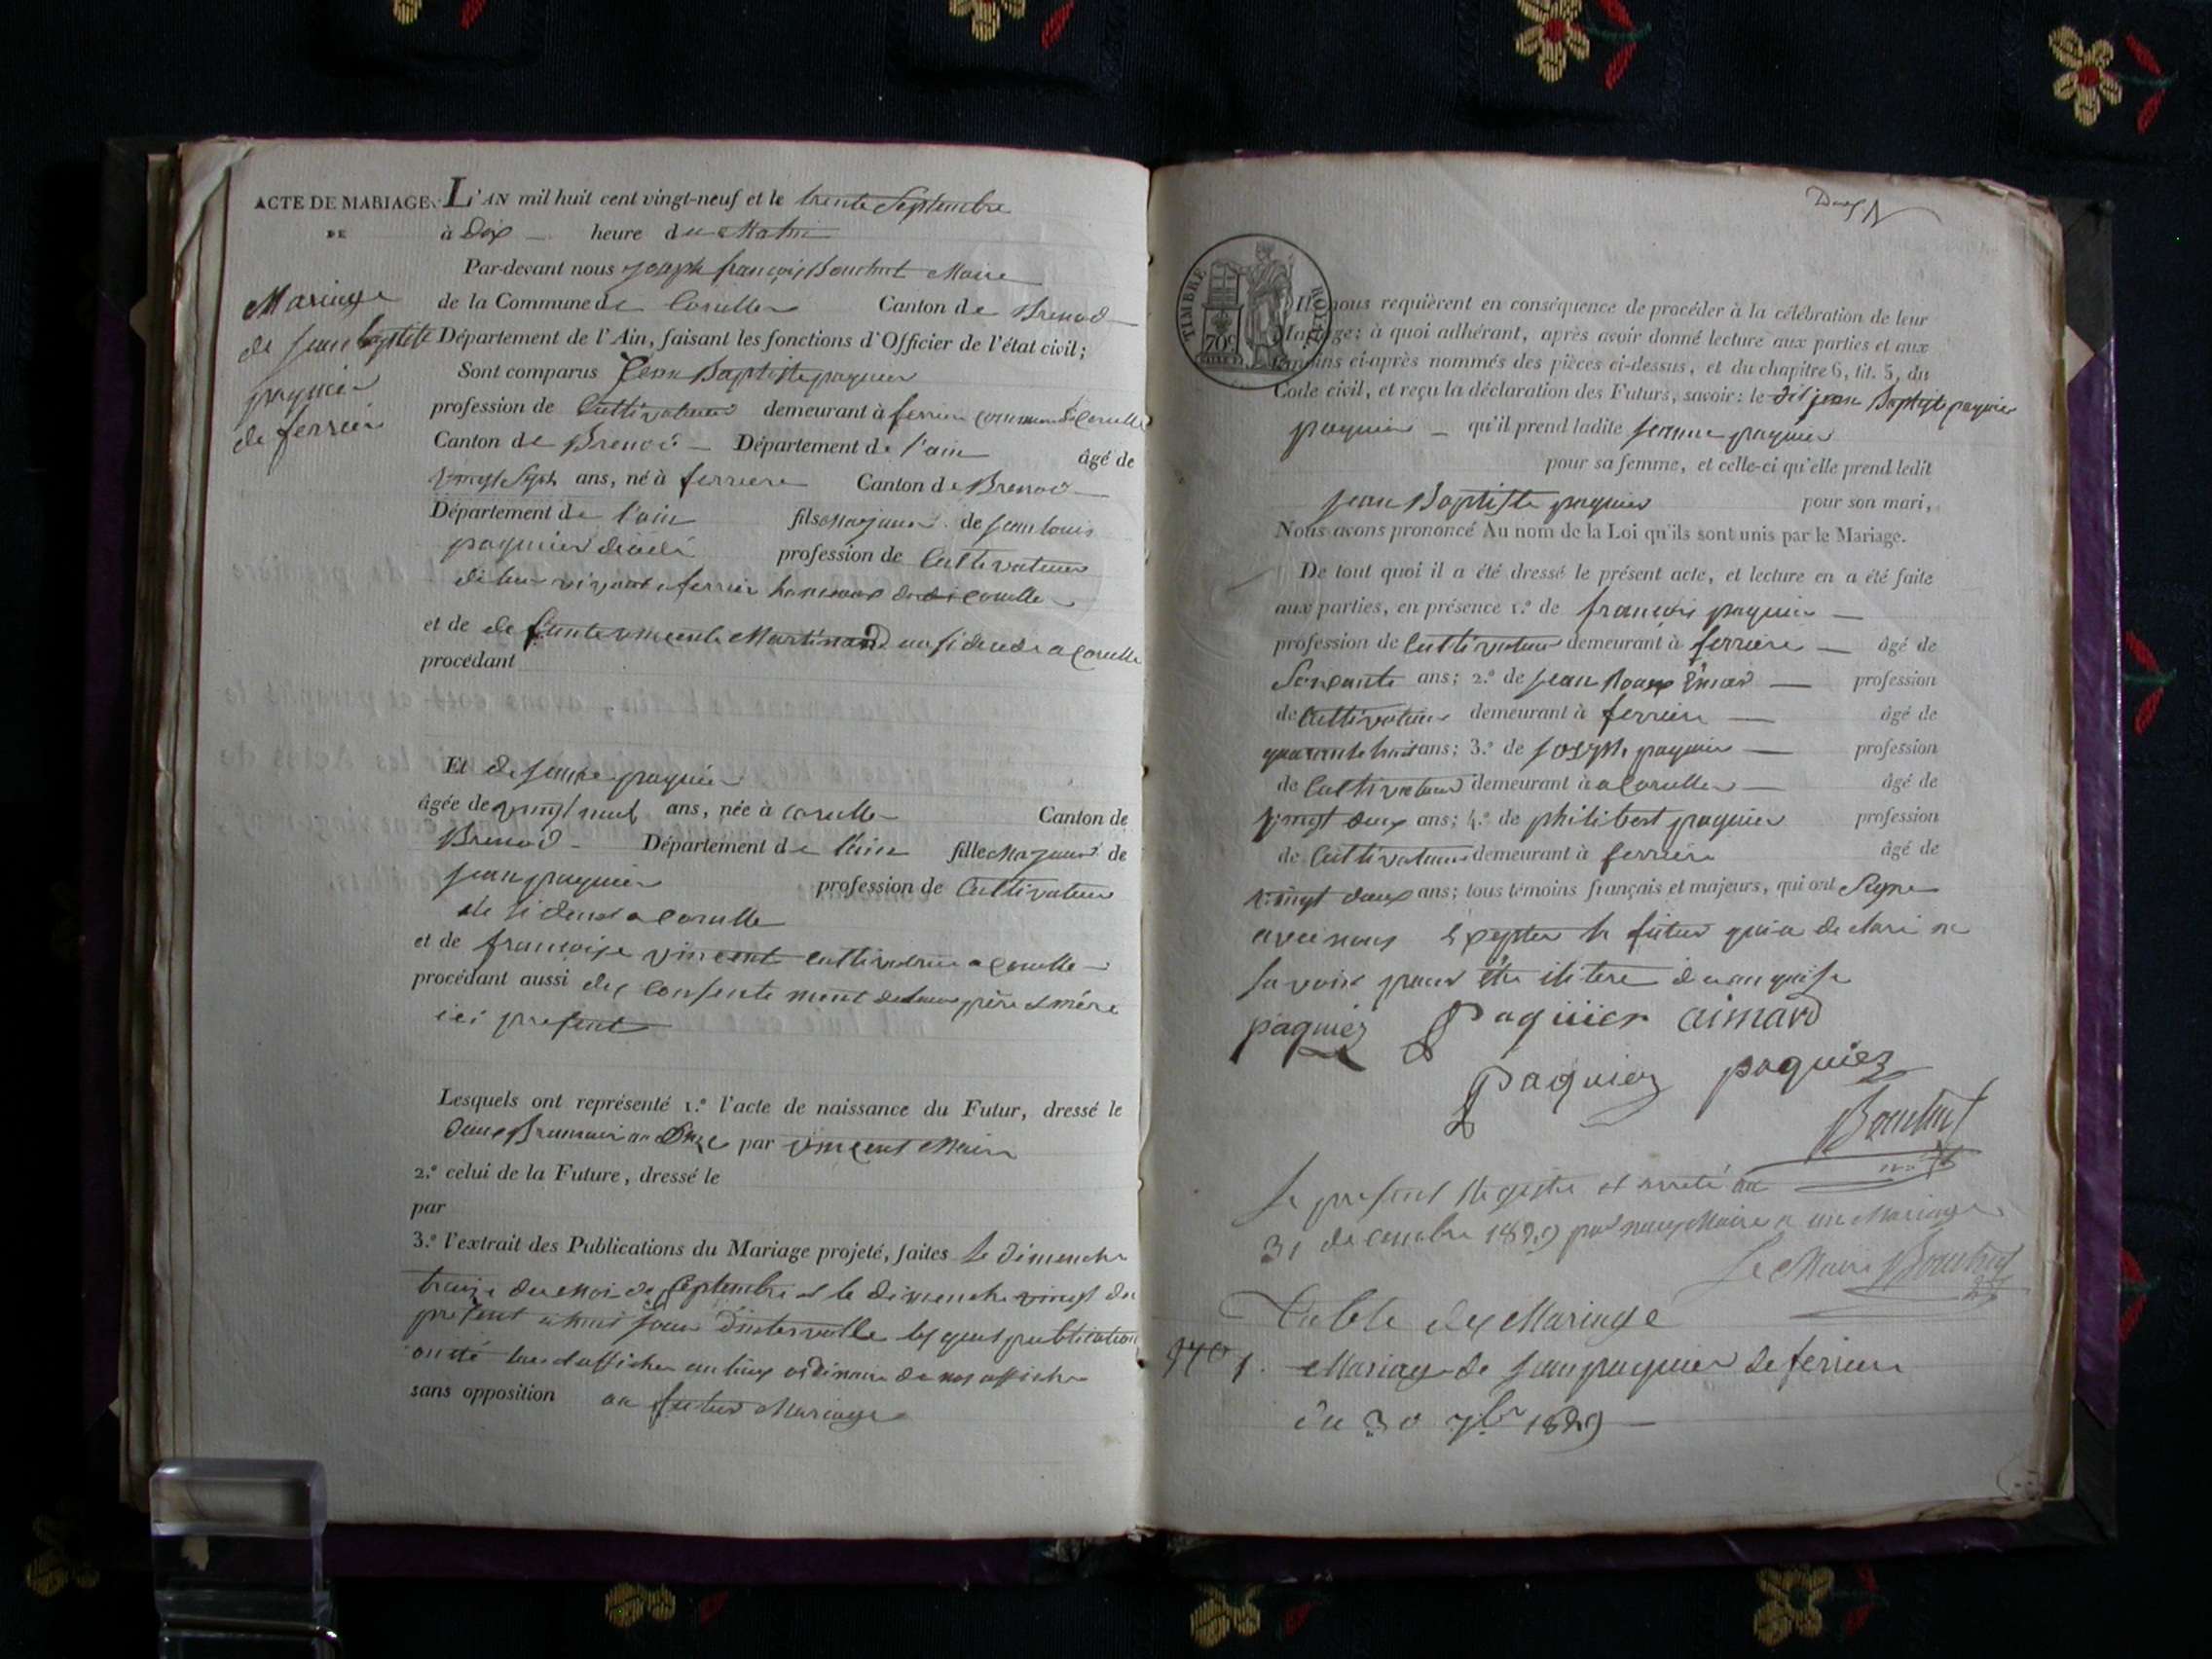 ACTE DE MARIAGE
DE
Mariage
de jean baptiste
paquier
de ferrier
L'AN mil huit cent vingt-neuf et le trente Septembre
à Dix heure du Matin
Par-devant nous joseph françois Maire
de la Commune de Corcelle Canton de Brenod
Département de l'Ain, faisant les fonctions d'Officier de l'état civil;
Sont comparus Jean Baptiste paquier
profession de Cultivateur demeurant à ferrier commune de Corcelle
Canton de Brenod Département de l'ain âgé de
vingt Sept ans, né à ferriere Canton de Brenod
Département de l'ain fils Majeur de jean louis
paquier profession de Cultivateur
de leur vivant a ferrier hameaux de corcelle
et de de Martinand a Corcelle
procédant
Et de jeanne paquier
âgée de vingt neuf ans, née à corcelle Canton de
Brenod Département de l'ain fille Majeur de
jean paquier profession de Cultivateur
a Corcelle
et de françoise vincent cultivatrice a Corcelle
procédant aussi des consentement de leur père et mère
ici present
Lesquels ont représenté 1.º l'acte de naissance du Futur, dressé le
par vincent Maire
2.º celui de la Future, dressé le
par
3.º l'extrait des Publications du Mariage projeté, faites le dimenche
treize du moi de Septembre et le dimenche vingt du
present a huit jour d'intervalle les quel publication
ont été lue et afficher au lieux ordinaire de nos affiche
sans opposition au futur Mariage
TIMBRE ROYAL
70c
Ils nous requièrent en conséquence de procéder à la célébration de leur
Mariage: à quoi adhérant, après avoir donné lecture aux parties et aux
témoins ci-après nommés des pièces ci-dessus, et du chapitre 6, tit. 5, du
Code civil, et reçu la déclaration des Futurs, savoir: le dit jean Baptiste paquier
paquier qu'il prend ladite jeanne paquier
pour sa femme, et celle-ci qu'elle prend ledit
jean Baptiste paquier pour son mari,
Nous avons prononcé Au nom de la Loi qu'ils sont unis par le Mariage.
De tout quoi il a été dressé le présent acte, et lecture en a été faite
aux parties, en présence 1.º de françois paquier
profession de Cultivateur demeurant à ferriere âgé de
Soixante ans; 2.º de jean profession
de Cultivateur demeurant à ferriere âgé de
quarante huit ans; 3.º de joseph paquier profession
de Cultivateur demeurant à a Corcelle âgé de
vingt deux ans; 4.º de philibert paquier profession
de Cultivateur demeurant à ferriere âgé de
vingt deux ans; tous témoins français et majeurs, qui ont Signe
avec nous Excepter le futur qui a declare ne
savoir pour être ilitere
paquier Paquier aimard
paquier paquier
Le present Registre et arreté au
31 decembre 1829 par nous Maire a un Mariage
Le Maire
Table des Mariage
1. Mariage de jean paquier de ferriere
du 30 7br 1829